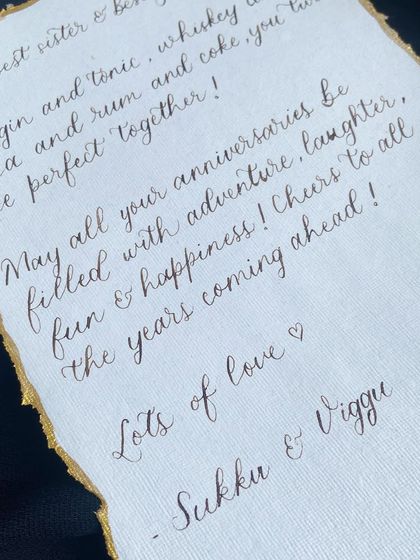 est sister & best
gin and tonic, whiskey
a and rum and coke, you
e perfect together!
May all your anniversaries be
filled with adventure, laughter,
fun & happiness! Cheers to all
the years coming ahead!
Lots of love ♡
- Sukku & Viggu